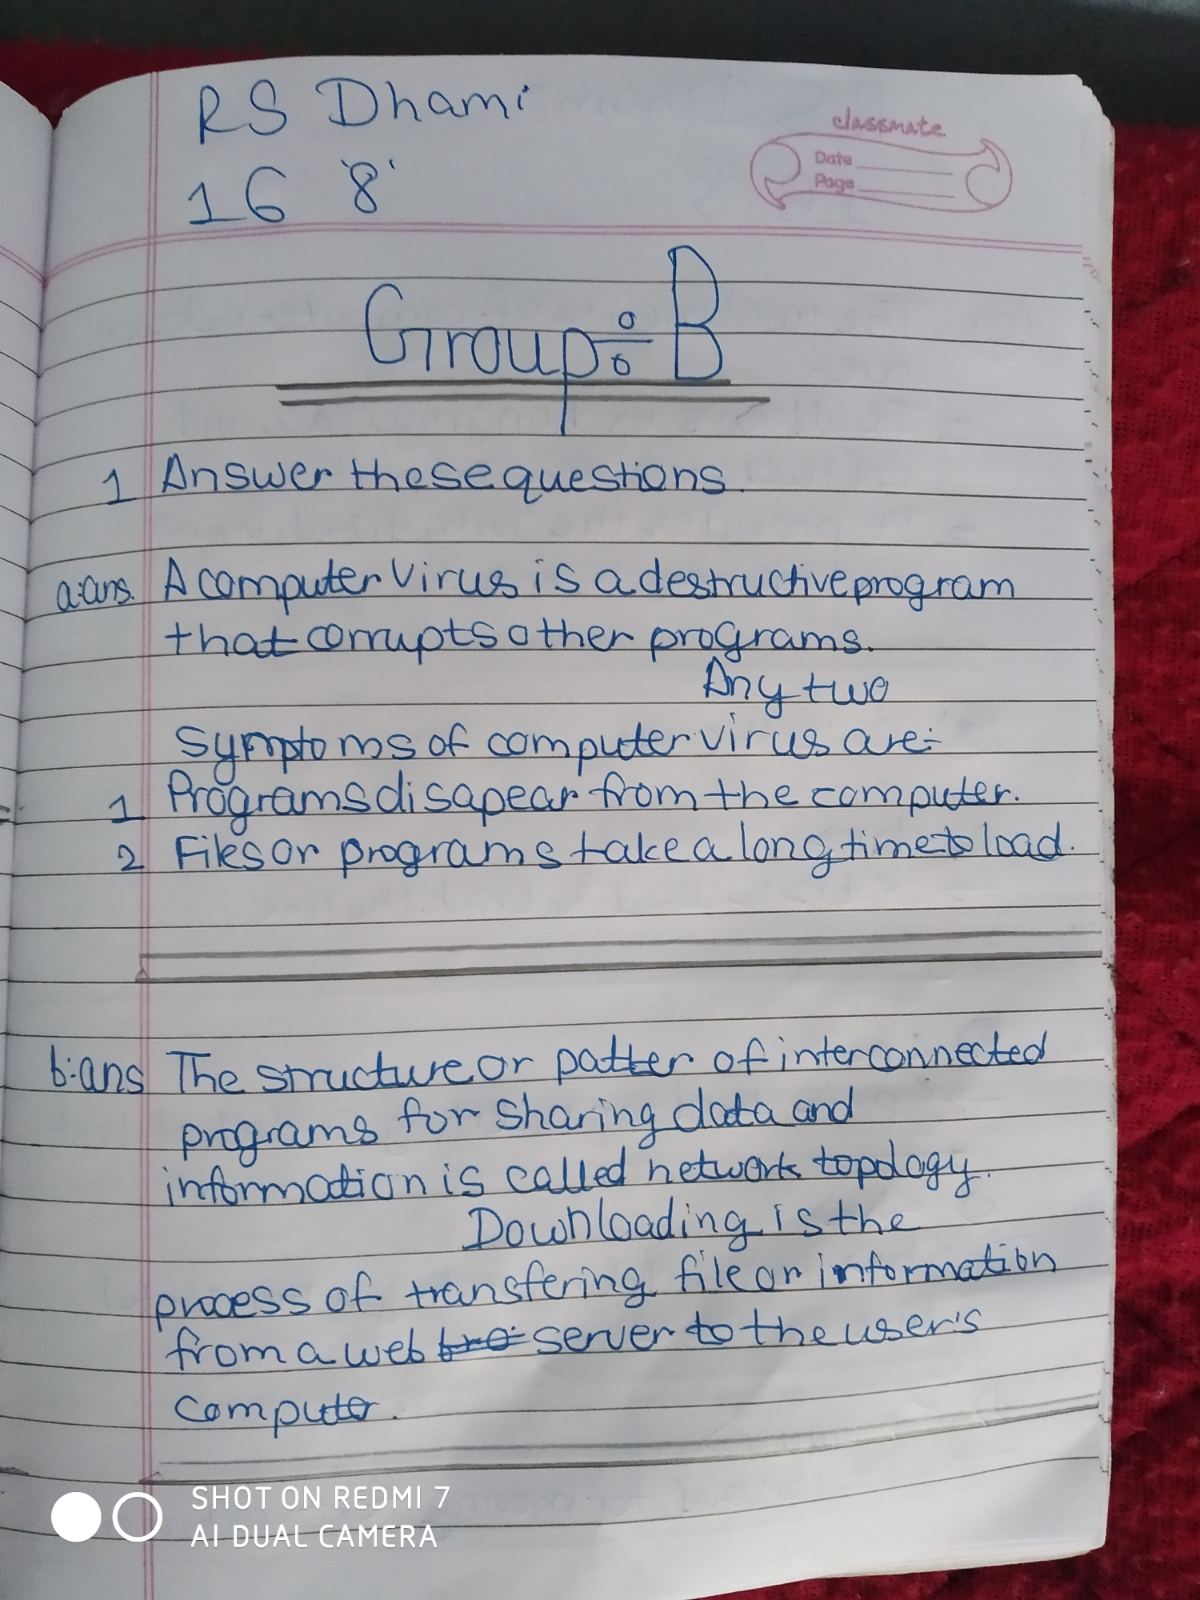 RS Dhami
16 '8'
classmate
Date
Page
Group÷B
1 Answer these questions.
a:ans. A computer virus is a destructive program
that corrupts other programs.
Any two
symptoms of computer virus are:-
1 Programs disapear from the computer.
2 Files or programs take a long time to load.
b:ans The structure or patter of interconnected
programs for sharing data and
information is called network topology.
Downloading is the
process of transfering file or information
from a web server to the user's
computer.
SHOT ON REDMI 7
AI DUAL CAMERA